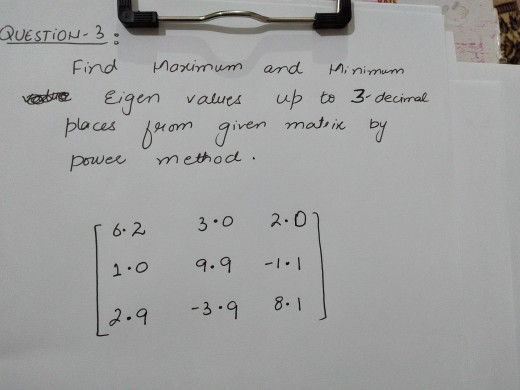 QUESTION-3:
Find Maximum and Minimum
Eigen values up to 3-decimal
places from given matrix by
power method.
6.2 3.0 2.0
1.0 9.9 -1.1
2.9 -3.9 8.1